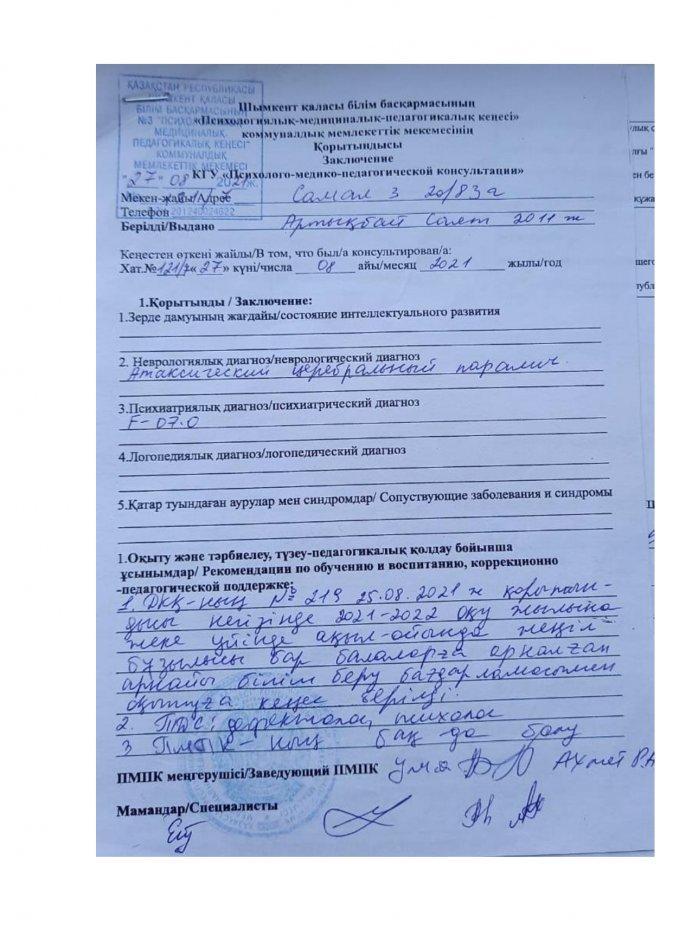 ҚАЗАҚСТАН РЕСПУБЛИКАСЫ
ШЫМКЕНТ ҚАЛАСЫ
БІЛІМ БАСҚАРМАСЫНЫҢ
№3 "ПСИХОЛОГИЯЛЫҚ-
МЕДИЦИНАЛЫҚ-
ПЕДАГОГИКАЛЫҚ КЕҢЕСІ"
КОММУНАЛДЫҚ
МЕМЛЕКЕТТІК МЕКЕМЕСІ
"27" 08 2021ж.
Шымкент қаласы білім басқармасының
«Психологиялық-медициналық-педагогикалық кеңесі»
коммуналдық мемлекеттік мекемесінің
Қорытындысы
Заключение
КГУ «Психолого-медико-педагогической консультации»
Мекен-жайы/Адрес Самал 3 20/83а
Телефон
Берілді/Выдано Артықбай 2011 ж
Кеңестен өткені жайлы/В том, что был/а консультирован/а:
Хат.№121/7 «27» күні/числа 08 айы/месяц 2021 жылы/год
1.Қорытынды / Заключение:
1.Зерде дамуының жағдайы/состояние интеллектуального развития
2. Неврологиялық диагноз/неврологический диагноз
Атаксический церебральный паралич.
3.Психиатриялық диагноз/психиатрический диагноз
F-07.0
4.Логопедиялық диагноз/логопедический диагноз
5.Қатар туындаған аурулар мен синдромдар/ Сопуствующие заболевания и синдромы
1.Оқыту және тәрбиелеу, түзеу-педагогикалық қолдау бойынша
ұсынымдар/ Рекомендации по обучению и воспитанию, коррекционно
-педагогической поддержке:
1. ДКК-ның № 219 25.08.2021 ж қорытын-
дысы негізінде 2021-2022 оқу жылына
жеке үйінде ақыл-ойында жеңіл
бұзылысы бар балаларға арналған
арнайы білім беру бағдарламасымен
оқытуға кеңес берілді.
2. ППС: дефектолог, психолог
3 ПМПК-ның бақ-да болу
ПМПК меңгерушісі/Заведующий ПМПК Ахмет Р.А
Мамандар/Специалисты